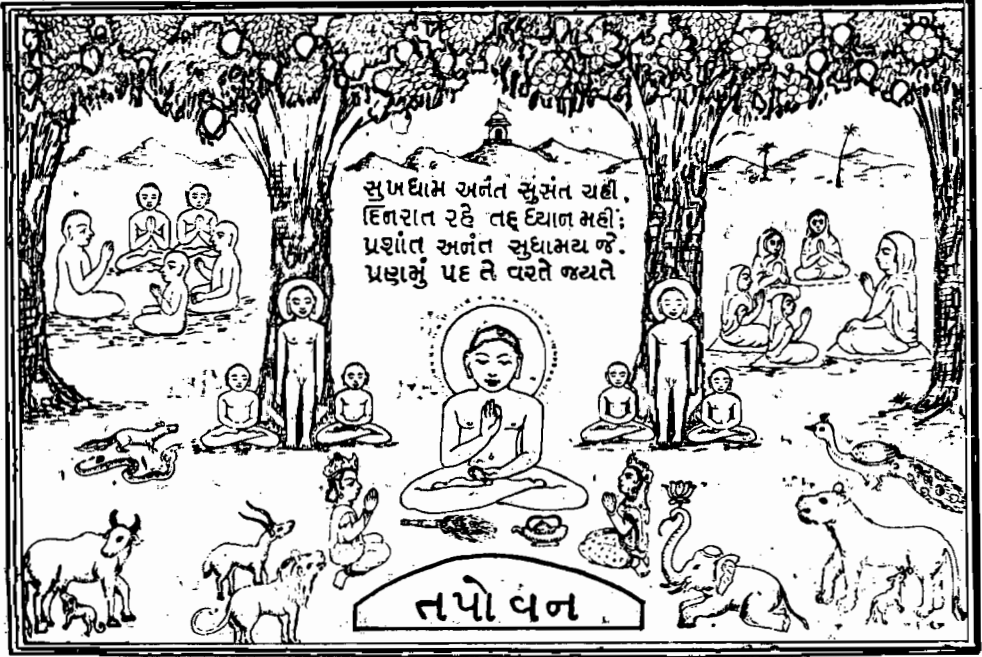 સુખધામ અનંત સુસંત ચહી,
દિનરાત રહે તદ્દ ધ્યાન મહીં;
પ્રશાંત અનંત સુધામય જે.
પ્રણમું પદ તે વરતે જયતે
તપોવન